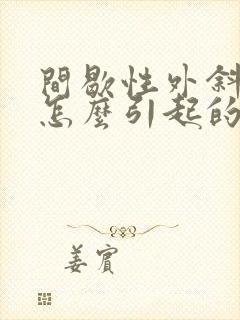 間歇性外斜
怎麼引起的
姜賓